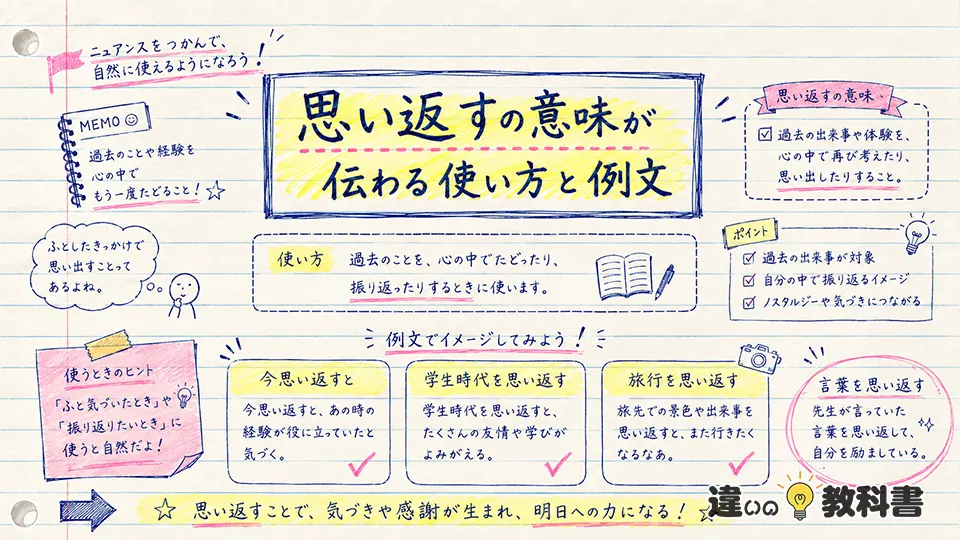 ニュアンスをつかんで、
自然に使えるようになろう!
思い返すの意味が
伝わる使い方と例文
MEMO
過去のことや経験を
心の中で
もう一度たどること!
思い返すの意味
過去の出来事や体験を、
心の中で再び考えたり、
思い出したりすること。
ふとしたきっかけで
思い出すことって
あるよね。
使い方
過去のことを、心の中でたどったり、
振り返ったりするときに使います。
ポイント
過去の出来事が対象
自分の中で振り返るイメージ
ノスタルジーや気づきにつながる
例文でイメージしてみよう!
使うときのヒント
「ふと気づいたとき」や
「振り返りたいとき」に
使うと自然だよ!
今思い返すと
今思い返すと、あの時の
経験が役に立っていたと
気づく。
学生時代を思い返す
学生時代を思い返すと、
たくさんの友情や学びが
よみがえる。
旅行を思い返す
旅先での景色や出来事を
思い返すと、また行きたく
なるなあ。
言葉を思い返す
先生が言っていた
言葉を思い返して、
自分を励ましている。
思い返すことで、気づきや感謝が生まれ、明日への力になる!
違いの教科書